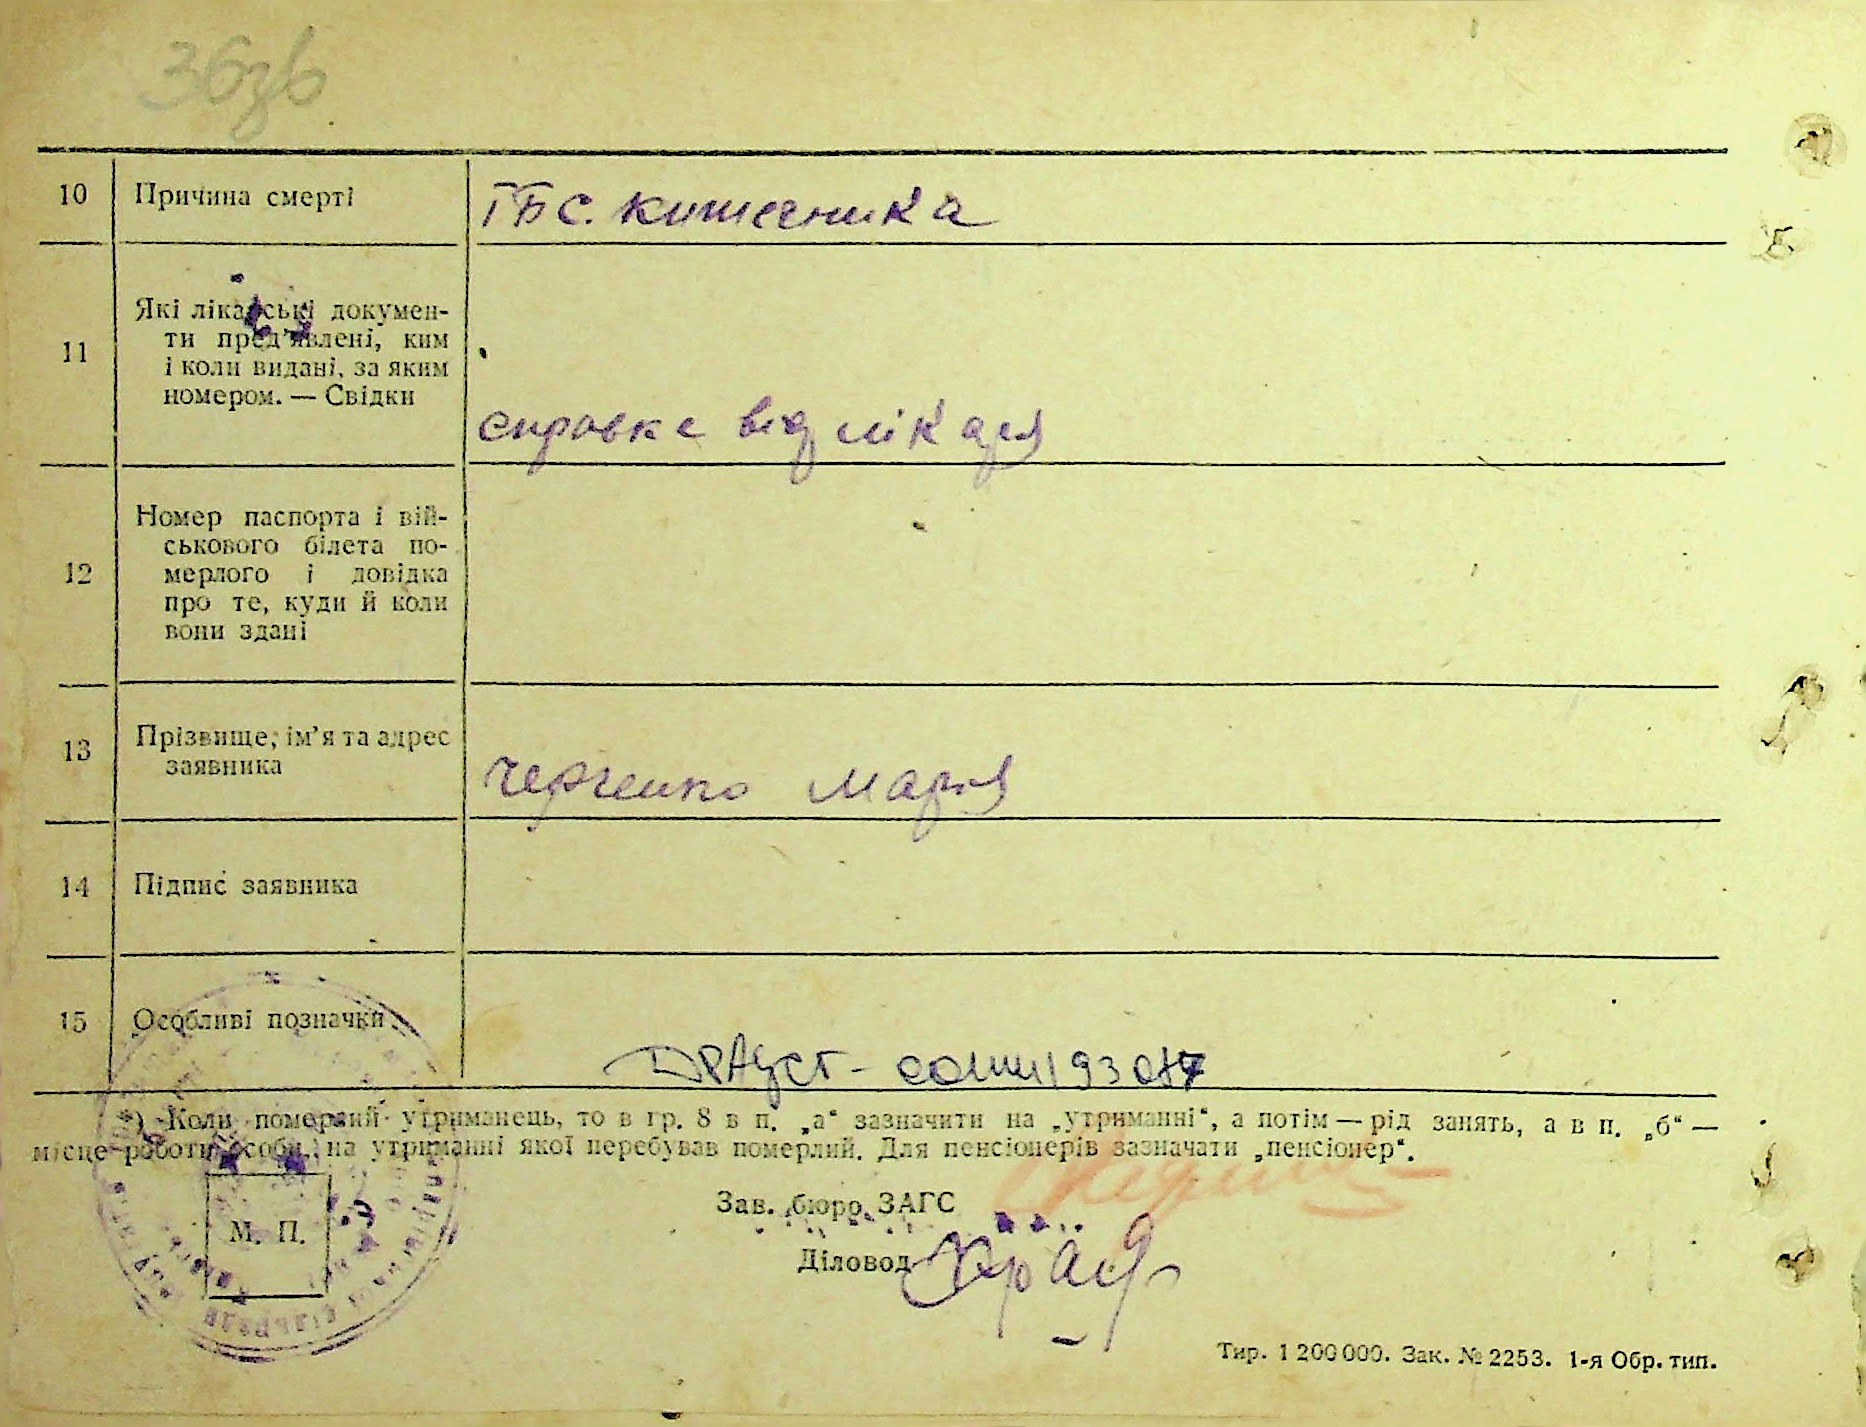 10 Причина смерті ТБС. кишечника
11 Які лікарські докумен-
ти пред'явлені, ким
і коли видані, за яким
номером. — Свідки
справка від лікаря
12 Номер паспорта і вій-
ськового білета по-
мерлого і довідка
про те, куди й коли
вони здані
13 Прізвище, ім'я та адрес
заявника
Марія
14 Підпис заявника
15 Особливі позначки
*) Коли померлий утриманець, то в гр. 8 в п. „а“ зазначити на „утриманні“, а потім — рід занять, а в п. „б“ —
місце роботи особи, на утриманні якої перебував померлий. Для пенсіонерів зазначати „пенсіонер“.
Зав. бюро ЗАГС
М. П.
Діловод
Тир. 1 200 000. Зак. № 2253. 1-я Обр. тип.